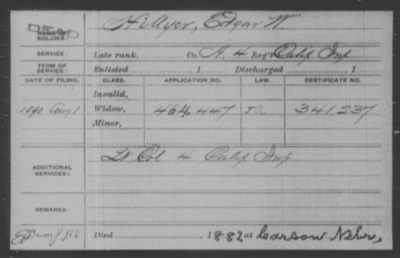 NAME OF SOLDIER: Hillyer, Edgar W.
SERVICE: Late rank, Co. A, 4 Reg't Calif Inf
TERM OF SERVICE: Enlisted , 1 Discharged , 1
DATE OF FILING. CLASS. APPLICATION NO. LAW. CERTIFICATE NO.
Invalid,
1890 Aug 1 Widow, 464,447 341,237
Minor,
ADDITIONAL SERVICES: Lt Col 4 Calif Inf
REMARKS:
Died 1882 at Carson Nev,